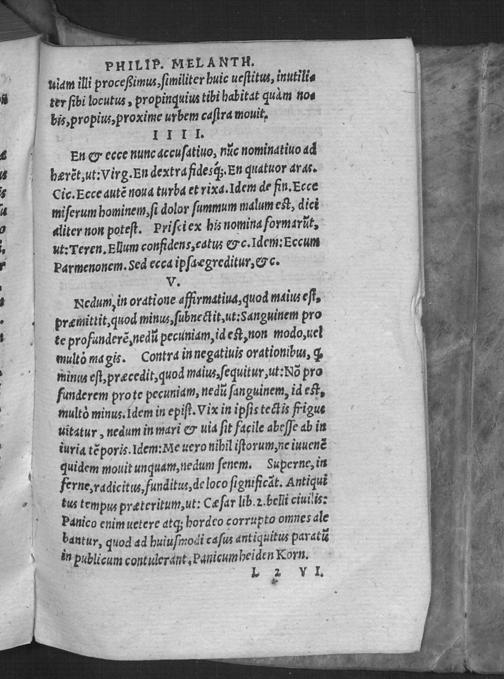 PHILIP. MELANTH.
uiam illi proceßimus, similiter huic uestitus, inutili-
ter sibi locutus, propinquius tibi habitat quàm no-
bis, propius, proxime urbem castra mouit.
I I I I.
En & ecce nunc accusatiuo, nũc nominatiuo ad
hærẽt, ut: Virg. En dextra fidesq́;. En quatuor aras.
Cic. Ecce autẽ noua turba et rixa. Idem de fin. Ecce
miserum hominem, si dolor summum malum est, dici
aliter non potest. Prisci ex his nomina formarũt,
ut: Teren. Ellum confidens, catus &c. Idem: Eccum
Parmenonem. Sed ecca ipsa ægreditur, &c.
V.
Nedum, in oratione affirmatiua, quod maius est,
præmittit, quod minus, subnectit, ut: Sanguinem pro
te profunderẽ, nedũ pecuniam, id est, non modo, uel
multò magis. Contra in negatiuis orationibus, q̃
minus est, præcedit, quod maius, sequitur, ut: Nõ pro
funderem pro te pecuniam, nedũ sanguinem, id est,
multò minus. Idem in epist. Vix in ipsis tectis frigus
uitatur, nedum in mari & uia sit facile abesse ab in
iuria tẽporis. Idem: Me uero nihil istorum, ne iuuenẽ
quidem mouit unquam, nedum senem. Superne, in
ferne, radicitus, funditus, de loco significãt. Antiqui
tus tempus præteritum, ut: Cæsar lib. 2. belli ciuilis:
Panico enim uetere atq; hordeo corrupto omnes ale
bantur, quod ad huiusmodi casus antiquitus paratũ
in publicum contulerant. Panicum heiden Korn.
L 2 VI.